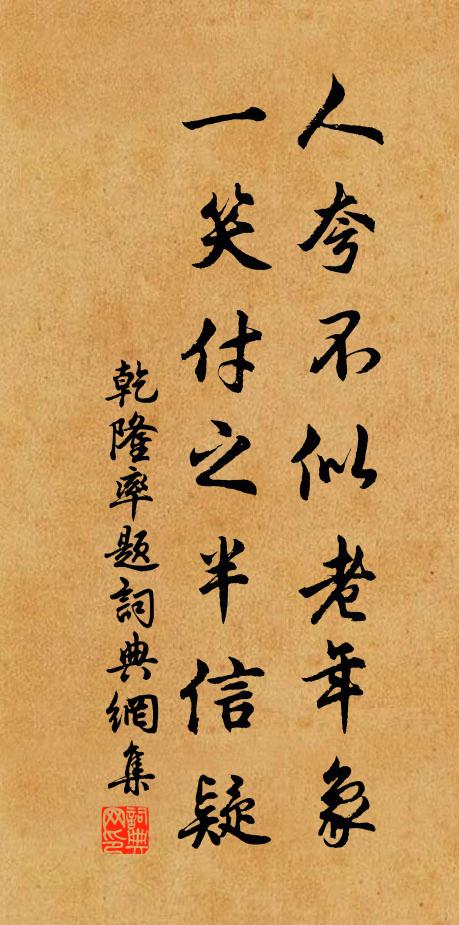 人夸不似老年象
一笑付之半信疑
乾隆率題詞典網集
詞典網印